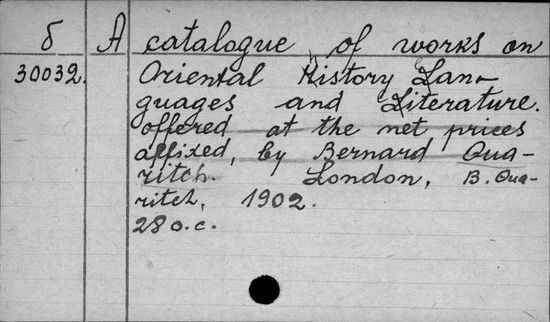 б A catalogue of works on
30032. Oriental History Lan-
guages and Literature.
offered at the net prices
affixed, by Bernard Qua-
ritch. London, B. Qua-
ritch, 1902.
280.c.